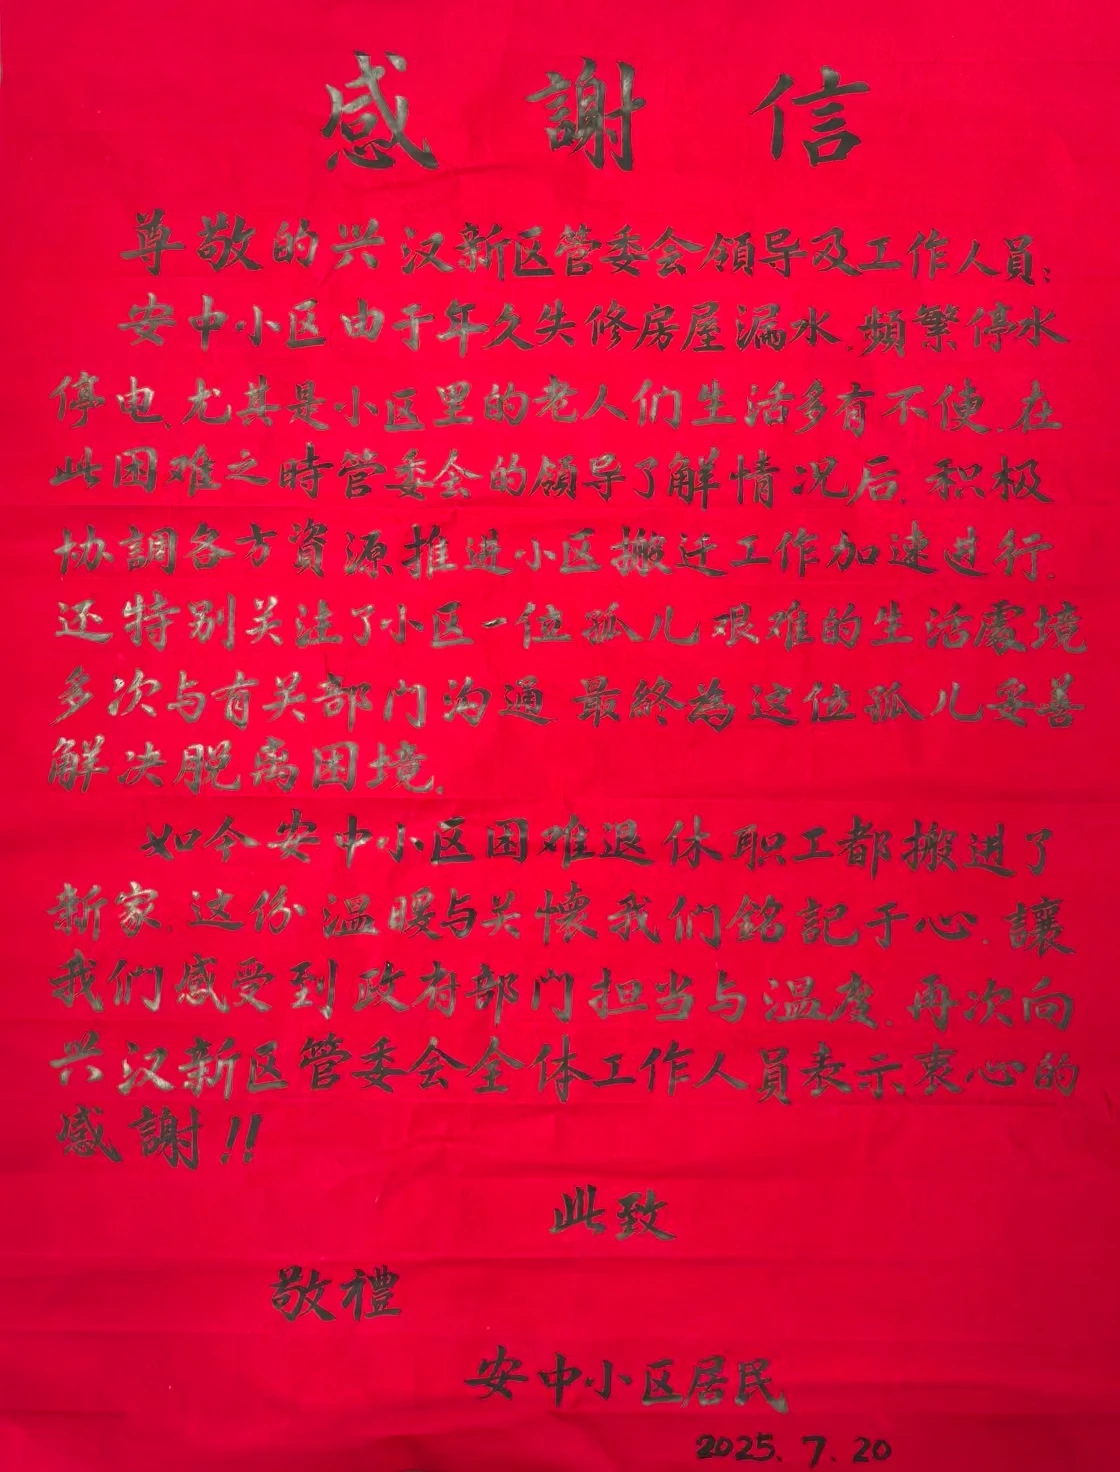 感謝信
尊敬的兴汉新区管委会領导及工作人員:
安中小区由于年久失修房屋漏水.頻繁停水
停电.尤其是小区里的老人们生活多有不便.在
此困难之時管委会的領导了解情况后.积极
协調各方資源推进小区搬迁工作加速进行.
还特别关注了小区一位孤儿艰难的生活處境
多次与有关部门沟通.最終為这位孤儿妥善
解决脱离困境.
如今安中小区困难退休职工都搬进了
新家.这份温暖与关懷我们銘記于心.讓
我们感受到政府部门担当与温度.再次向
兴汉新区管委会全体工作人員表示衷心的
感謝!!
此致
敬禮
安中小区居民
2025.7.20